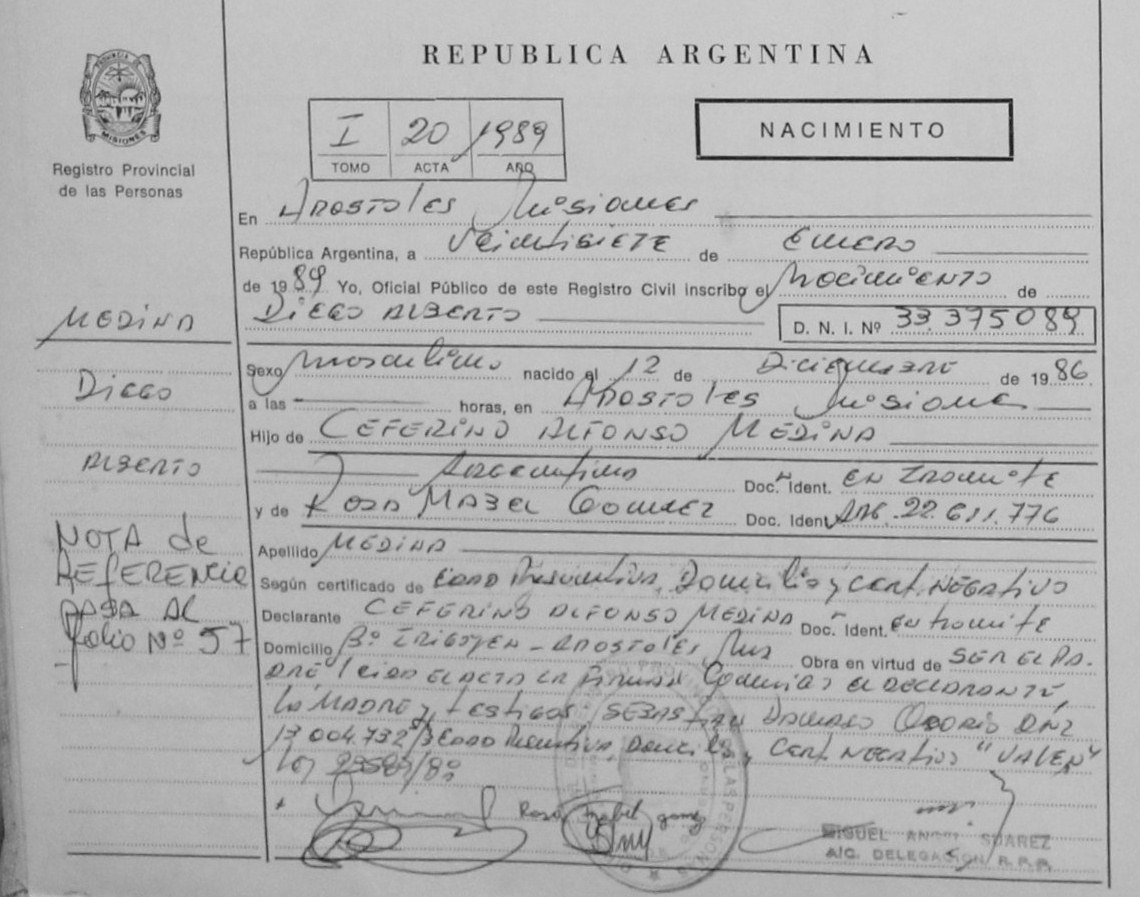 REPUBLICA ARGENTINA
PROVINCIA DE MISIONES
Registro Provincial
de las Personas
I 20 1989
TOMO ACTA AÑO
NACIMIENTO
En Apostoles Misiones
República Argentina, a Veintisiete de Enero
de 1989 Yo, Oficial Público de este Registro Civil inscribo el Nacimiento de
Diego Alberto D. N. I. Nº 33.375089
MEDINA
Diego
Alberto
NOTA de
REFERENCIA
PASA AL
folio Nº 57
Sexo Masculino nacido el 12 de Diciembre de 1986.
a las horas, en Apostoles Misiones
Hijo de CEFERINO ALFONSO MEDINA
Argentino Doc. Ident. EN Tramite
y de Rosa MABEL Gomez Doc. Ident. 22.611.776
Apellido MEDINA
Según certificado de Edad Presuntiva, Domicilio y Cert. NEGAtivo
Declarante CEFERINO ALFONSO MEDINA Doc. Ident. EN tramite
Domicilio Bº IRIGOYEN - APOSTOLES, Mis Obra en virtud de SER EL PA-
DRE leida EL ACTA LA FIRMAN Conmigo el DECLARANTE,
LA MADRE y testigos: SEBASTIAN
17.004.732 Edad Presuntiva, Domicilio, Cert. NEGAtivo "VALEN"
Rosa Mabel gomez
MIGUEL ANGEL SUAREZ
A/C. DELEGACION R. P. P.